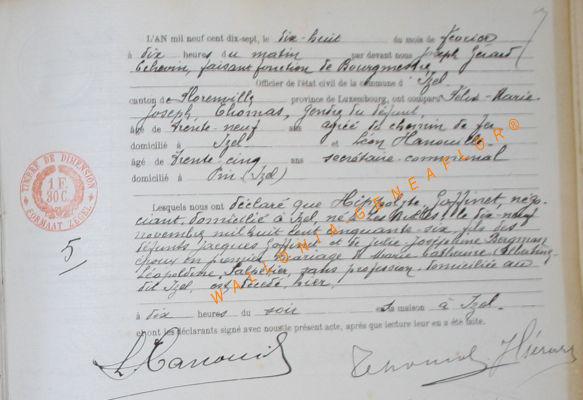 L'AN mil neuf cent dix-sept, le dix-huit du mois de février
à dix heures du matin par devant nous Joseph Gérard
Echevin, faisant fonction de Bourgmestre
Officier de l'état civil de la commune d' Izel
canton de Florenville province de Luxembourg, ont comparu Félix-Marie
Joseph Thomas, Gendre du défunt,
âgé de trente-neuf ans agréé du chemin de fer
domicilié à Izel et Léon Hanouille
âgé de trente cinq ans secrétaire communal
domicilié à Pin (Izel)
Lesquels nous ont déclaré que Hippolyte Goffinet, négo-
ciant, domicilié à Izel, né à le dix-neuf
novembre mil huit cent cinquante six, fils des
défunts Jacques Goffinet et de Julie Josephine Bergman
époux en premier mariage d Marie Catherine
Léopoldine sans profession domiciliée au
dit Izel, est décédé hier,
à dix heures du soir en sa maison à Izel
et ont les déclarants signé avec nous le présent acte, après que lecture leur en a été faite.
TIMBRE DE DIMENSION
1 F. 30 C.
FORMAAT ZEGEL
5
WALLONIA GENEAPI.OR®
L. Hanouille Thomas J Gérard